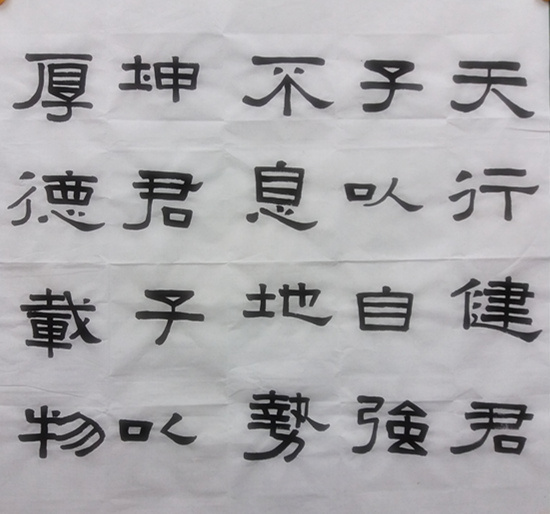 天行健君
子以自強
不息地勢
坤君子以
厚德載物